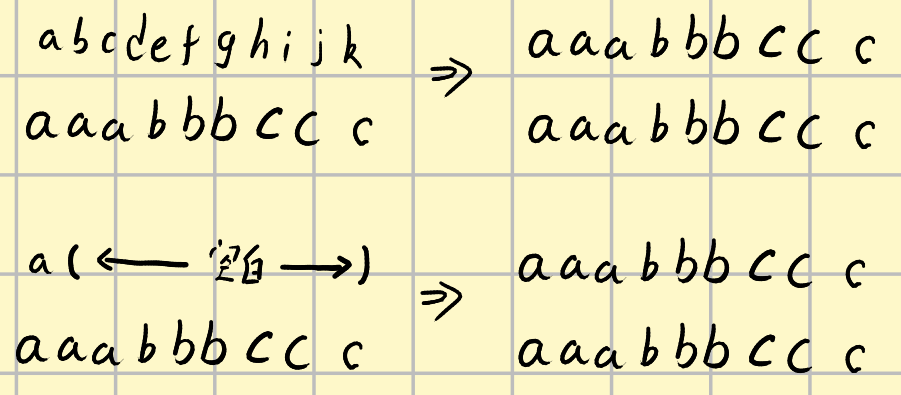 abcdefghijk ⇒ aaabbbccc
aaabbbccc aaabbbccc
a(← 空白 →) ⇒ aaabbbccc
aaabbbccc aaabbbccc